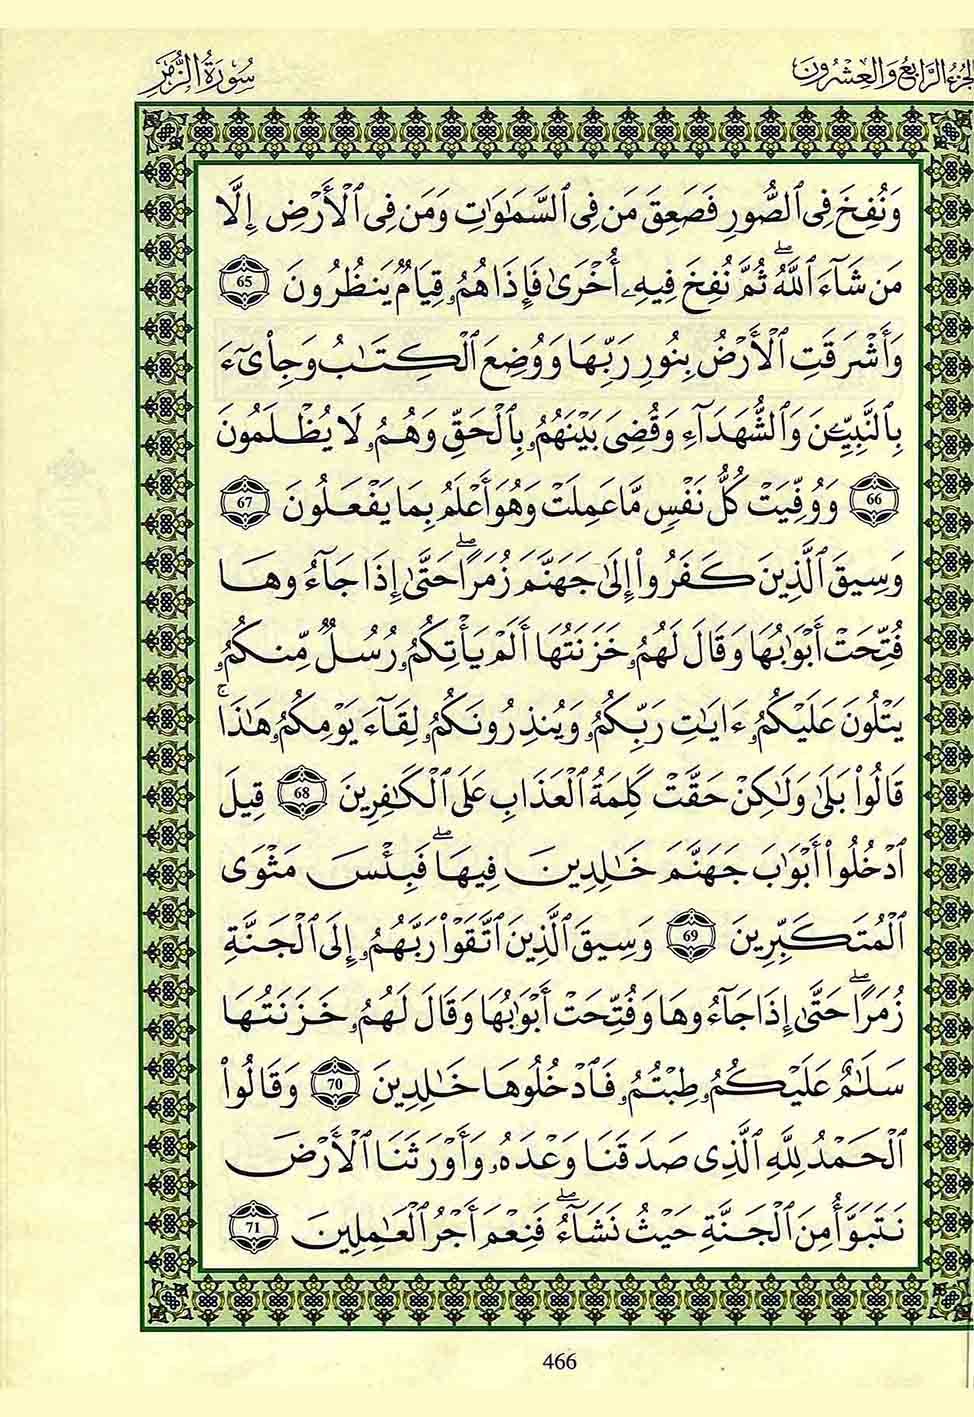 الجزء الرابع والعشرون
سورة الزمر
وَنُفِخَ فِى ٱلصُّورِ فَصَعِقَ مَن فِى ٱلسَّمَٰوَٰتِ وَمَن فِى ٱلۡأَرۡضِ إِلَّا
مَن شَآءَ ٱللَّهُۖ ثُمَّ نُفِخَ فِيهِۦ أُخۡرَىٰ فَإِذَا هُمُۥ قِيَامٌ يَنظُرُونَ 65
وَأَشۡرَقَتِ ٱلۡأَرۡضُ بِنُورِ رَبِّهَا وَوُضِعَ ٱلۡكِتَٰبُ وَجِاْىٓءَ
بِٱلنَّبِيِّـۧنَ وَٱلشُّهَدَآءِ وَقُضِىَ بَيۡنَهُمُۥ بِٱلۡحَقِّ وَهُمُۥ لَا يُظۡلَمُونَ
66 وَوُفِّيَتۡ كُلُّ نَفۡسٍ مَّا عَمِلَتۡ وَهُوَ أَعۡلَمُ بِمَا يَفۡعَلُونَ 67
وَسِيقَ ٱلَّذِينَ كَفَرُوٓاْ إِلَىٰ جَهَنَّمَ زُمَرًاۖ حَتَّىٰ إِذَا جَآءُوهَا
فُتِّحَتۡ أَبۡوَٰبُهَا وَقَالَ لَهُمُۥ خَزَنَتُهَا أَلَمۡ يَأۡتِكُمُۥ رُسُلٌ مِّنكُمُۥ
يَتۡلُونَ عَلَيۡكُمُۥ ءَايَٰتِ رَبِّكُمُۥ وَيُنذِرُونَكُمُۥ لِقَآءَ يَوۡمِكُمُۥ هَٰذَاۚ
قَالُواْ بَلَىٰ وَلَٰكِنۡ حَقَّتۡ كَلِمَةُ ٱلۡعَذَابِ عَلَى ٱلۡكَٰفِرِينَ 68 قِيلَ
ٱدۡخُلُوٓاْ أَبۡوَٰبَ جَهَنَّمَ خَٰلِدِينَ فِيهَاۖ فَبِئۡسَ مَثۡوَى
ٱلۡمُتَكَبِّرِينَ 69 وَسِيقَ ٱلَّذِينَ ٱتَّقَوۡاْ رَبَّهُمُۥ إِلَى ٱلۡجَنَّةِ
زُمَرًاۖ حَتَّىٰ إِذَا جَآءُوهَا وَفُتِّحَتۡ أَبۡوَٰبُهَا وَقَالَ لَهُمُۥ خَزَنَتُهَا
سَلَٰمٌ عَلَيۡكُمُۥ طِبۡتُمُۥ فَٱدۡخُلُوهَا خَٰلِدِينَ 70 وَقَالُواْ
ٱلۡحَمۡدُ لِلَّهِ ٱلَّذِى صَدَقَنَا وَعۡدَهُۥ وَأَوۡرَثَنَا ٱلۡأَرۡضَ
نَتَبَوَّأُ مِنَ ٱلۡجَنَّةِ حَيۡثُ نَشَآءُۖ فَنِعۡمَ أَجۡرُ ٱلۡعَٰمِلِينَ 71
466